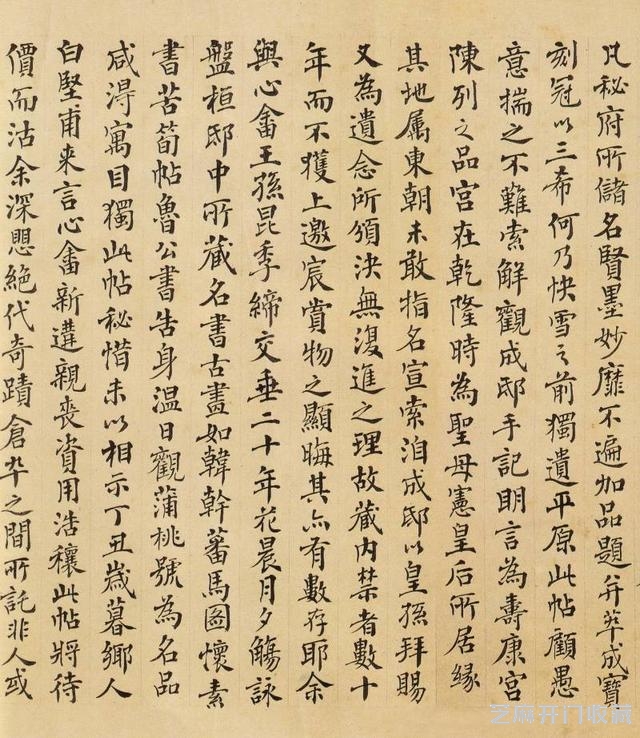 凡秘府所儲名賢墨妙靡不遍加品題并萃成寶
刻冠以三希何乃快雪之前獨遺平原此帖顧愚
意揣之不難索解觀成邸手記明言為壽康宮
陳列之品宮在乾隆時為聖母憲皇后所居緣
其地屬東朝未敢指名宣索洎成邸以皇孫拜賜
又為遺念所頒決無復進之理故藏內禁者數十
年而不獲上邀宸賞物之顯晦其亦有數存耶余
與心畬王孫昆季締交垂二十年花晨月夕觴詠
盤桓邸中所藏名書古畫如韓幹蕃馬圖懷素
書苦筍帖魯公書告身溫日觀蒲桃號為名品
咸得寓目獨此帖秘惜未以相示丁丑歲暮鄉人
白堅甫来言心畬新遘親喪資用浩穰此帖將待
價而沽余深愳絕代奇蹟倉卒之間所託非人或
芝麻开门收藏